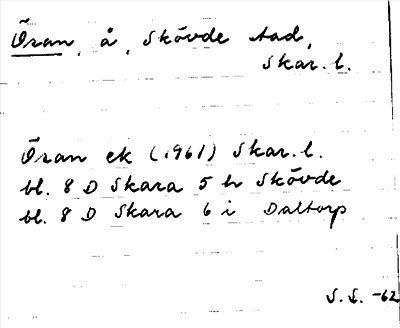 Ösan, å, Skövde stad,
Skar. l.
Ösan ek (1961) Skar. l.
bl. 8 D Skara 5 h Skövde
bl. 8 D Skara 6 i Daltorp
S.L. -62